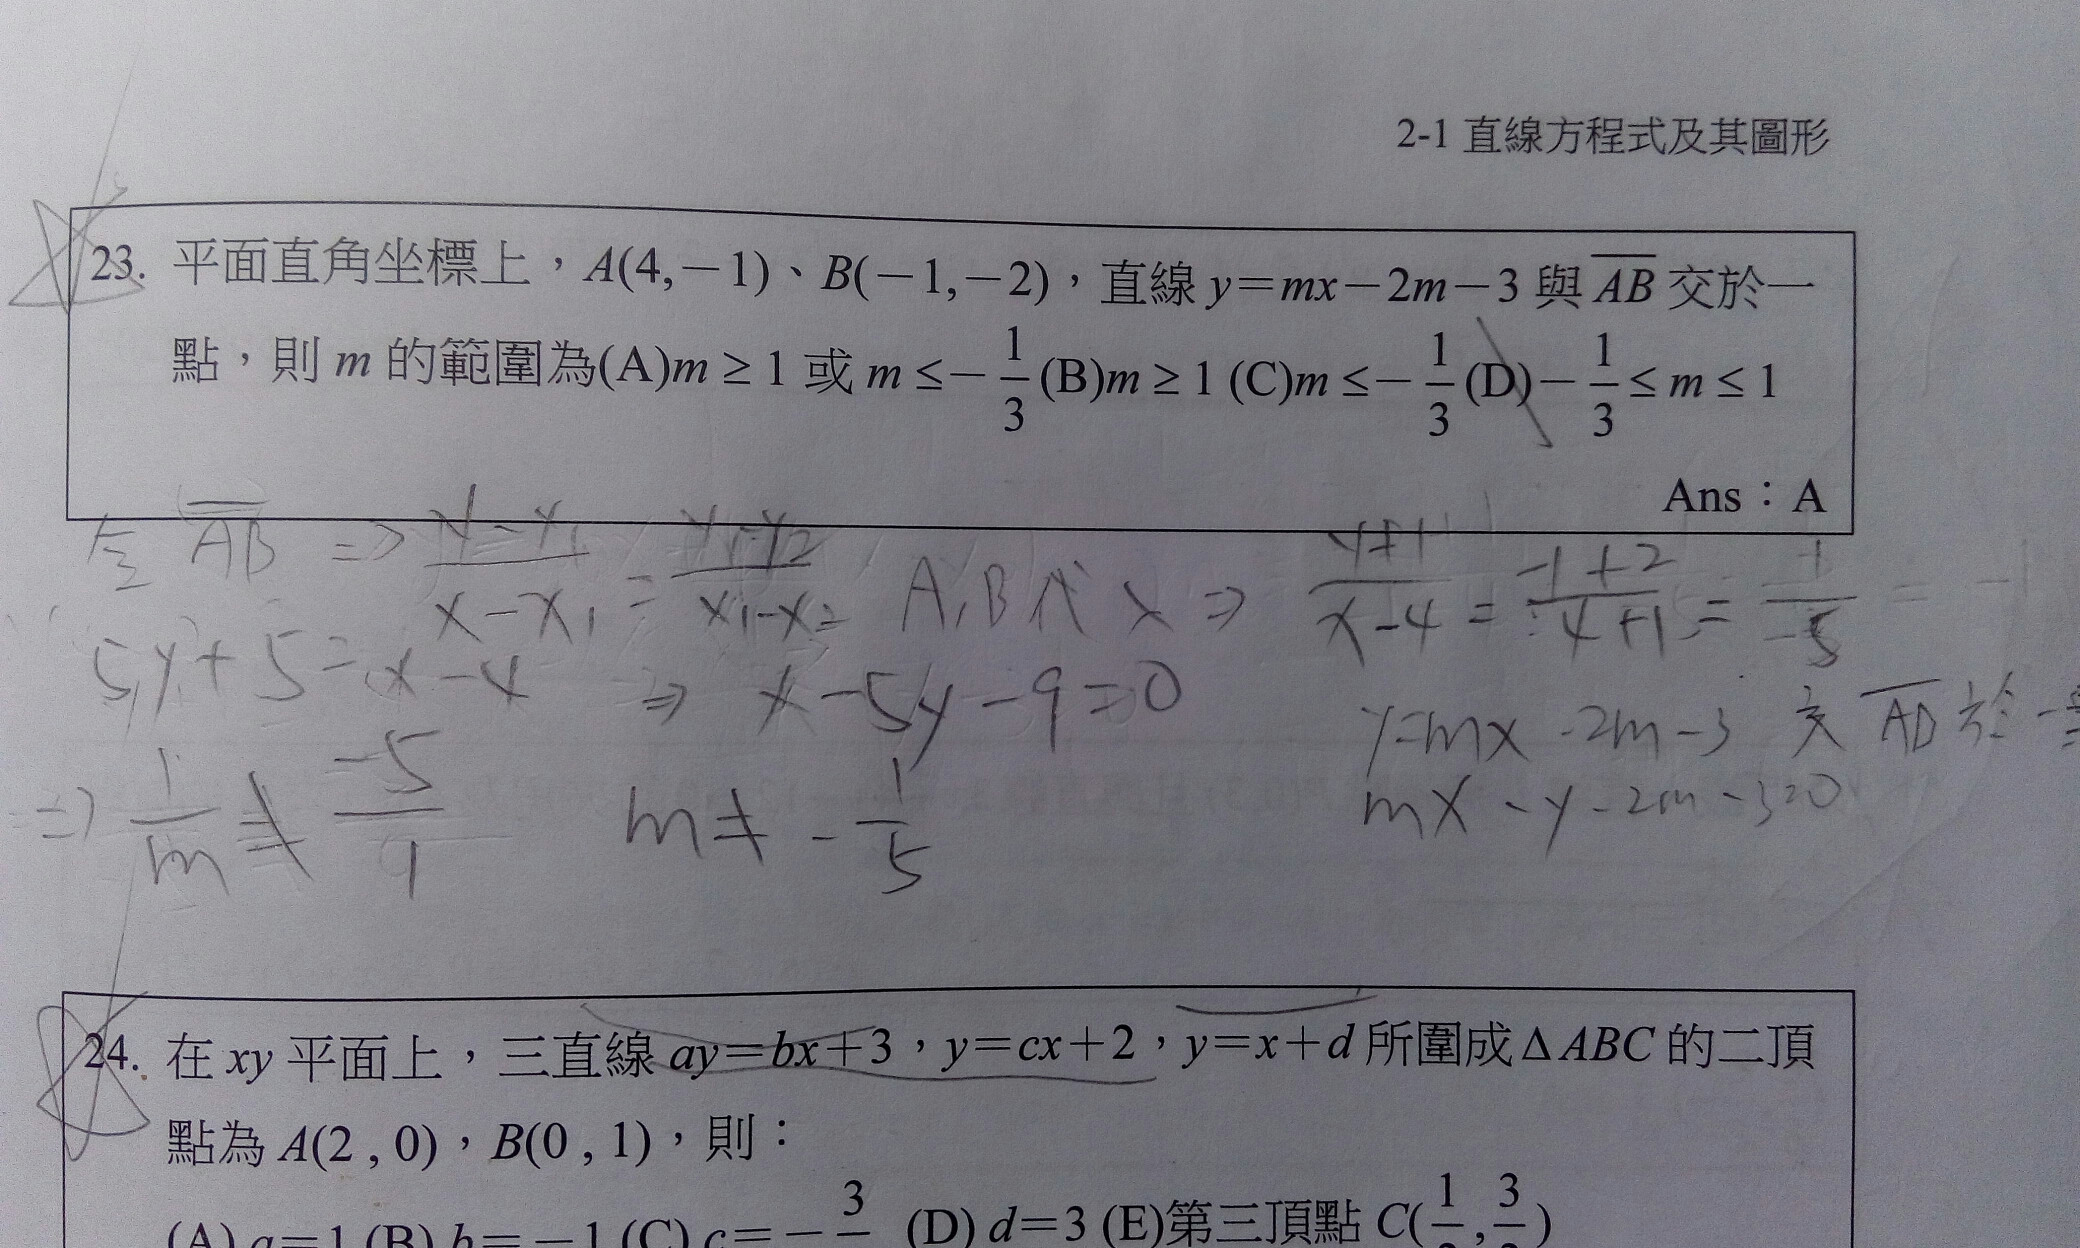 2-1 直線方程式及其圖形
23. 平面直角坐標上，A(4,－1)、B(－1,－2)，直線 y＝mx－2m－3 與 \overline{AB} 交於一
點，則 m 的範圍為(A)m ≥ 1 或 m ≤－1/3 (B)m ≥ 1 (C)m ≤－1/3 (D)－1/3 ≤ m ≤ 1
Ans：A
\overline{AB} => (y-y1)/(x-x1) = (y1-y2)/(x1-x2) A,B代入 => (y+1)/(x-4) = (-1+2)/(4+1) = 1/5
5y+5=x-4 => x-5y-9=0
y=mx-2m-3 交 \overline{AB} 於一
mx-y-2m-3=0
=> 1/m ≠ -5/1 m≠-1/5
24. 在 xy 平面上，三直線 ay＝bx＋3，y＝cx＋2，y＝x＋d 所圍成 Δ ABC 的二頂
點為 A(2 , 0)，B(0 , 1)，則：
(A) a＝1 (B) b＝－1 (C) c＝－3 (D) d＝3 (E)第三頂點 C(1 , 3)